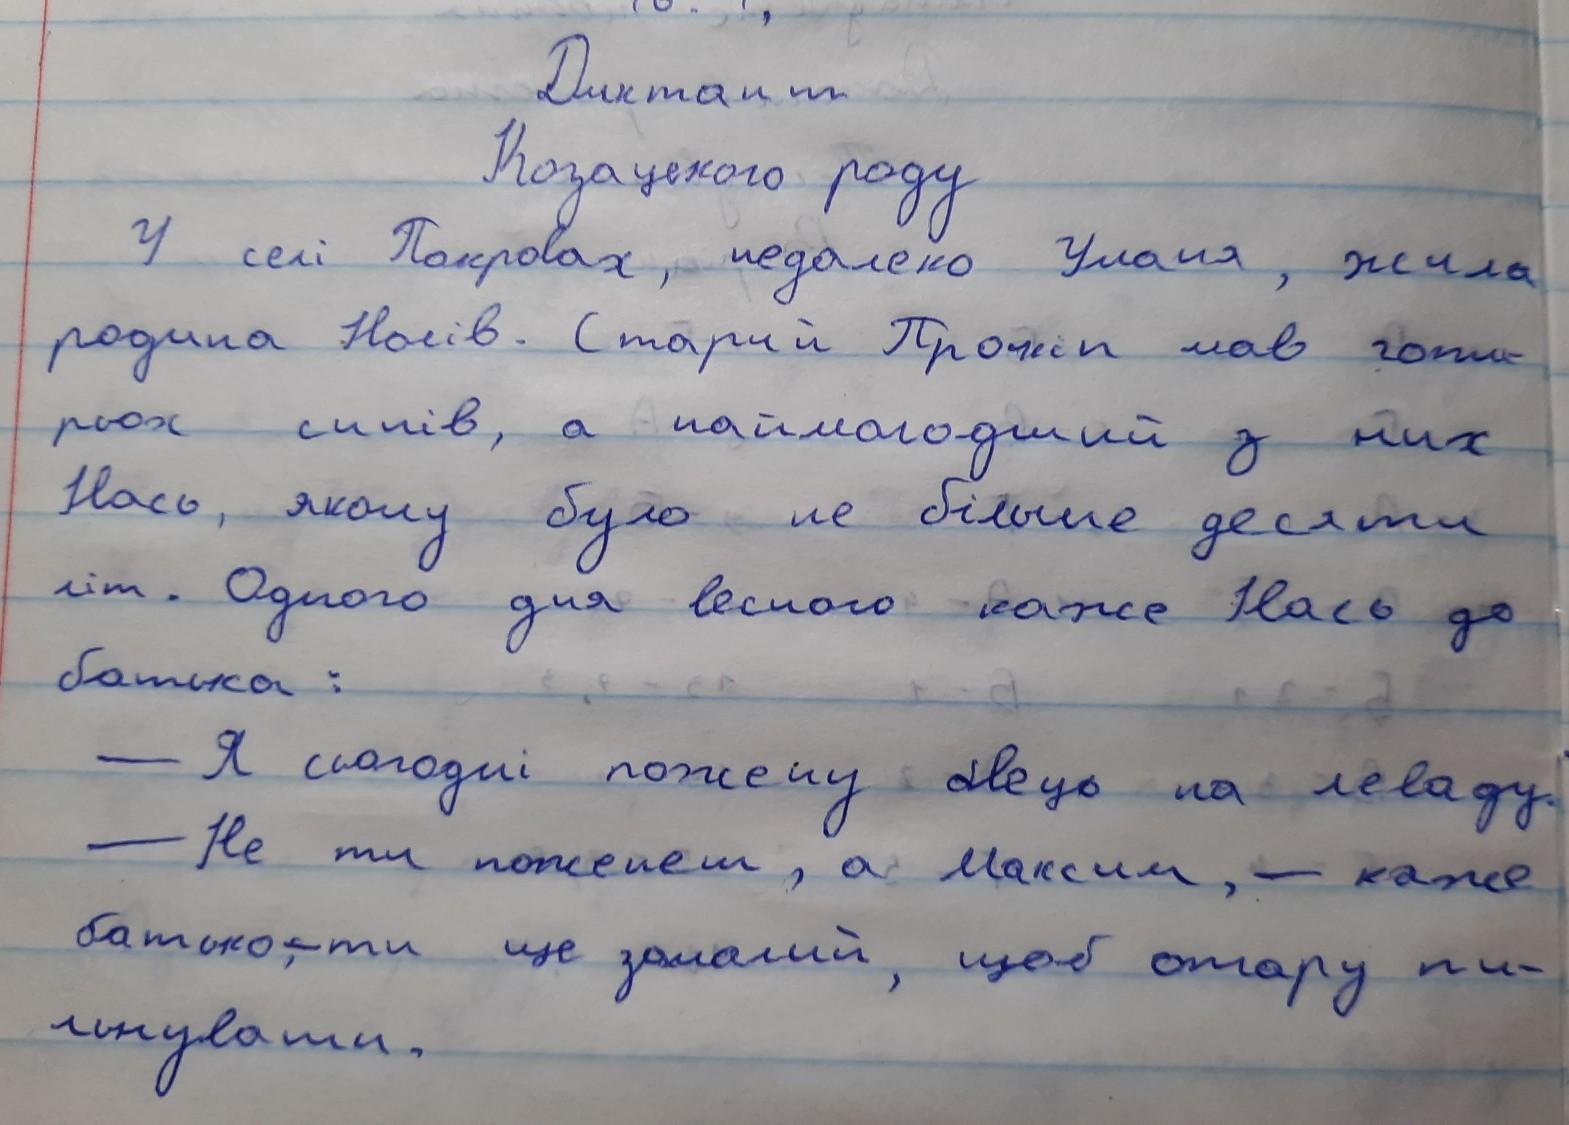 Диктант
Козацького роду
У селі Покровах, недалеко Уманя, жила
родина Носів. Старий Прокіп мав чоти-
рьох синів, а наймолодший з них
Нась, якому було не більше десяти
літ. Одного дня весною каже Нась до
батька:
— Я сьогодні пожену овець на леваду.
— Не ти поженеш, а Максим, — каже
батько, - ти ще замалий, щоб отару пи-
льнувати.